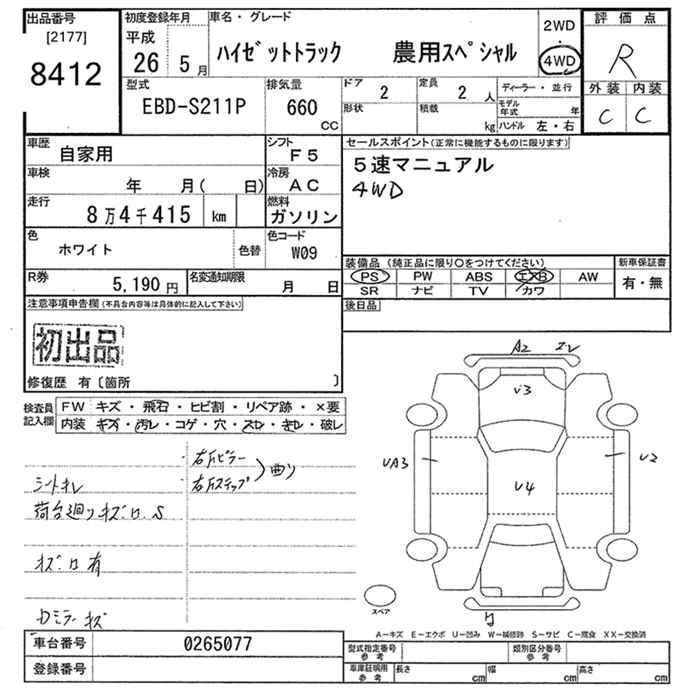 出品番号
[2177]
8412
初度登録年月
平成
26 5月
車名・グレード
ハイゼットトラック 農用スペシャル
2WD
・
4WD
評価点
R
外装 内装
C C
型式
EBD-S211P
排気量
660
CC
ドア
2
形状
定員
2 人
積載
kg
ディーラー・並行
モデル年式 年
ハンドル 左・右
車歴
自家用
シフト
F5
車検
年 月( 日)
冷房
AC
走行
8万4千415 km
燃料
ガソリン
色
ホワイト
色替
色コード
W09
R券
5,190 円
名変通知期限
月 日
セールスポイント(正常に機能するものに限ります)
5速マニュアル
4WD
装備品 (純正品に限り○をつけてください)
PS PW ABS エアB AW
SR ナビ TV カワ
新車保証書
有・無
後日品
注意事項申告欄(不具合内容等は具体的に記入して下さい)
初出品
修復歴 有〔箇所 〕
検査員
記入欄
FW キズ・飛石・ヒビ割・リペア跡・×要
内装 キズ・汚レ・コゲ・穴・スレ・キレ・破レ
右Aピラー
右Aステップ
曲り
シートキレ
荷台廻りキズ、凹、S
キズ凹有
Dミラーキズ
A2
V3
UA3
V4
U2
スペア
A-キズ E-エクボ U-凹み W-補修跡 S-サビ C-腐食 XX-交換済
車台番号
0265077
登録番号
型式指定番号
参考
類別区分番号
参考
車庫証明用
参考
長さ cm
幅 cm
高さ cm